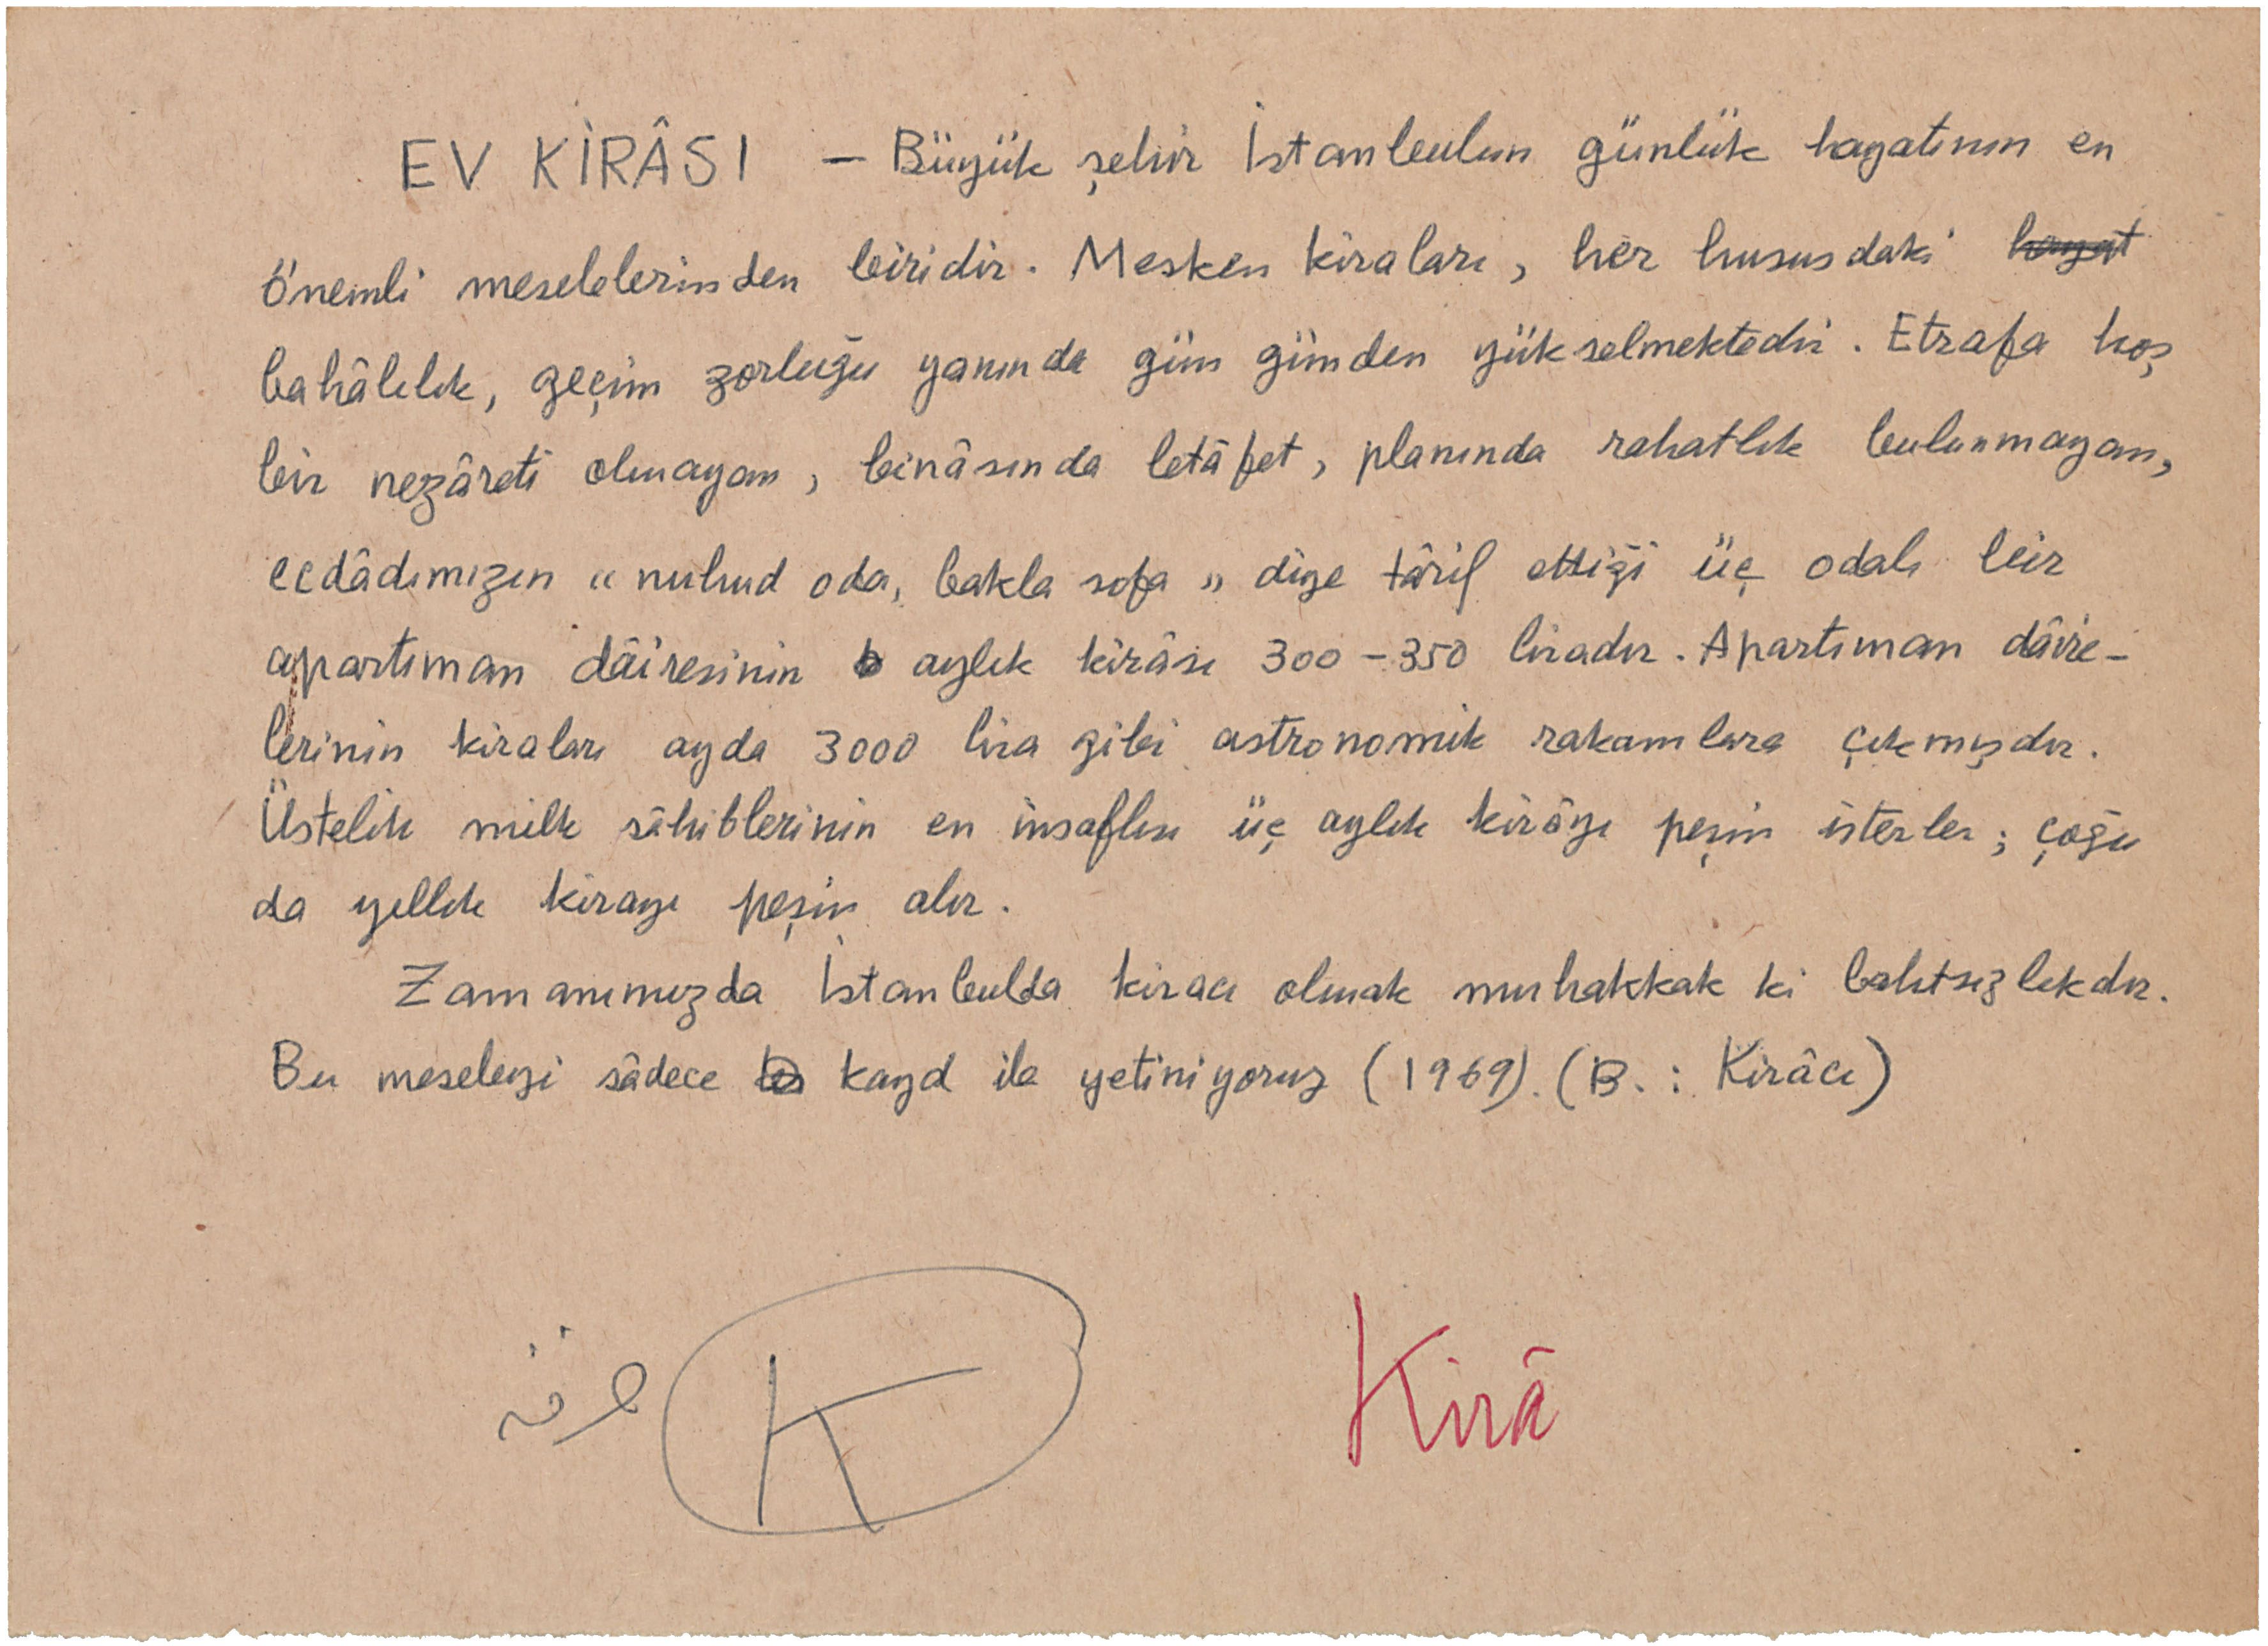 EV KİRÂSI — Büyük şehir İstanbulun günlük hayatının en
önemli meselelerinden biridir. Mesken kiraları, her hususdaki hayat
bahâlılık, geçim zorluğu yanında gün günden yükselmektedir. Etrafa hoş
bir nezâreti olmayan, binâsında letâfet, planında rahatlık bulunmayan,
ecdâdımızın "nuhud oda, bakla sofa" diye târif ettiği üç odalı bir
apartıman dâiresinin aylık kirâsı 300-350 liradır. Apartıman dâire-
lerinin kiraları ayda 3000 lira gibi astronomik rakamlara çıkmışdır.
Üstelik milk sâhiblerinin en insaflısı üç aylık kirâyı peşin isterler; çoğu
da yıllık kirayı peşin alır.
Zamanımızda İstanbulda kiracı olmak muhakkak ki bahtsızlıkdır.
Bu meseleyi sâdece kayd ile yetiniyoruz (1969). (B.: Kirâcı)
K Kirâ